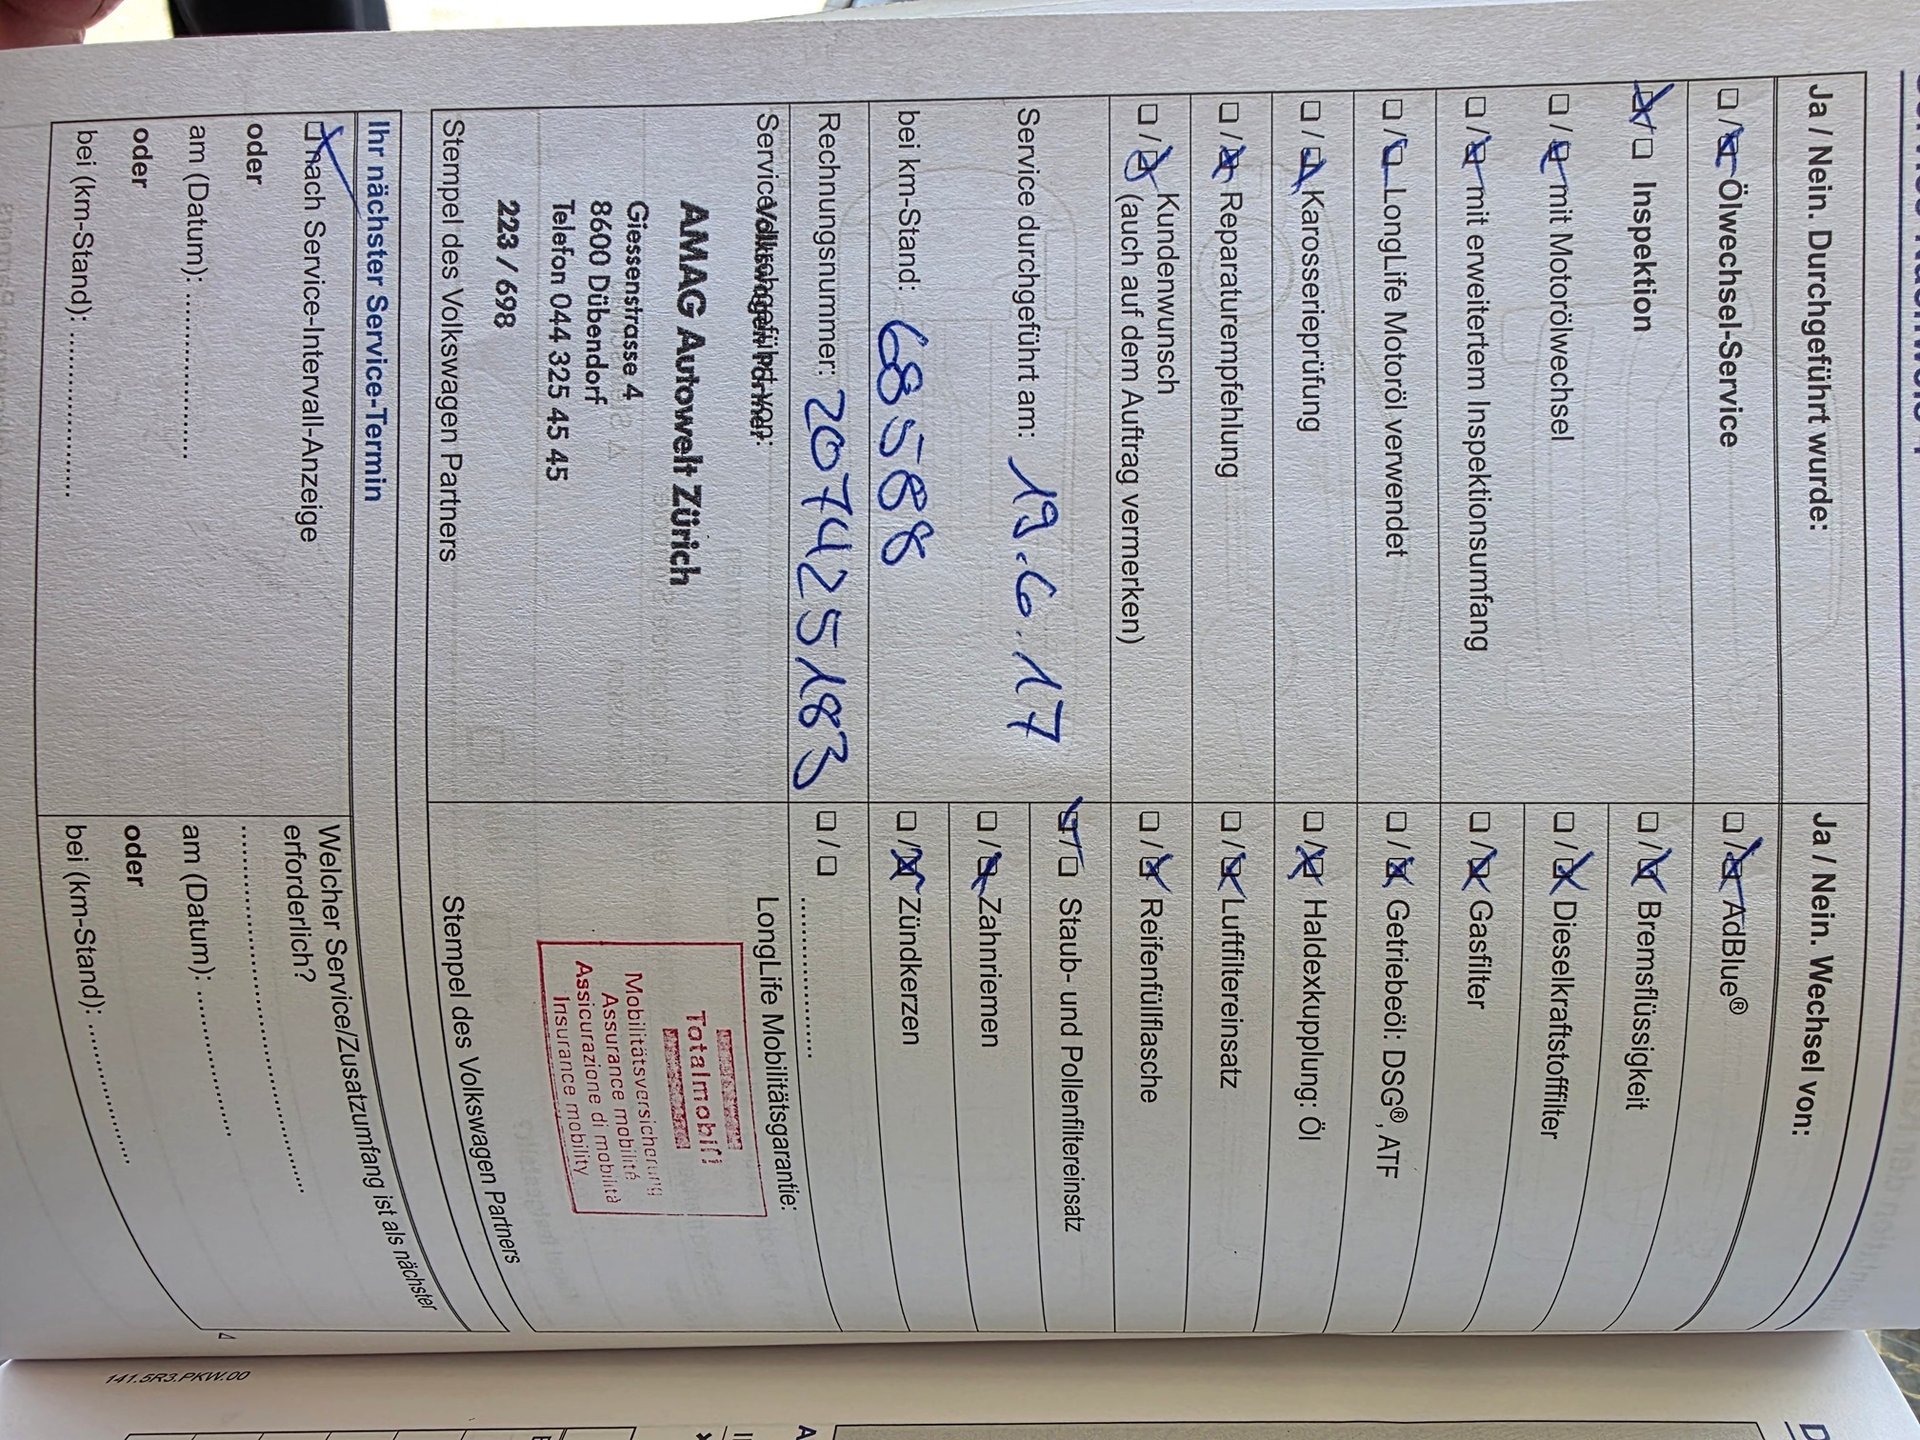 Ja / Nein. Durchgeführt wurde:
☐ / ☒ Ölwechsel-Service
☒ / ☐ Inspektion
☐ / ☒ mit Motorölwechsel
☐ / ☒ mit erweitertem Inspektionsumfang
☐ / ☒ LongLife Motoröl verwendet
☐ / ☒ Karosserieprüfung
☐ / ☒ Reparaturempfehlung
☐ / ☒ Kundenwunsch
(auch auf dem Auftrag vermerken)
Service durchgeführt am: 19.6.17
bei km-Stand: 68588
Rechnungsnummer: 207425183
Service durchgeführt von:
Volkswagen Partner
AMAG Autowelt Zürich
Giessenstrasse 4
8600 Dübendorf
Telefon 044 325 45 45
223 / 698
Stempel des Volkswagen Partners
Ja / Nein. Wechsel von:
☐ / ☒ AdBlue®
☐ / ☒ Bremsflüssigkeit
☐ / ☒ Dieselkraftstofffilter
☐ / ☒ Gasfilter
☐ / ☒ Getriebeöl: DSG®, ATF
☐ / ☒ Haldexkupplung: Öl
☐ / ☒ Luftfiltereinsatz
☐ / ☒ Reifenfüllflasche
☒ / ☐ Staub- und Pollenfiltereinsatz
☐ / ☒ Zahnriemen
☐ / ☒ Zündkerzen
☐ / ☐ ....................
LongLife Mobilitätsgarantie:
Totalmobil!
Mobilitätsversicherung
Assurance mobilité
Assicurazione di mobilità
Insurance mobility
Stempel des Volkswagen Partners
Ihr nächster Service-Termin
☒ nach Service-Intervall-Anzeige
oder
am (Datum): ....................
oder
bei (km-Stand): ....................
Welcher Service/Zusatzumfang ist als nächster
erforderlich?
..............................................
am (Datum): ....................
oder
bei (km-Stand): ....................
141.5R3.PKW.00